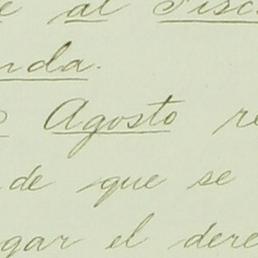 al Fisc
nda.
Agosto re
de que se
gar el dere